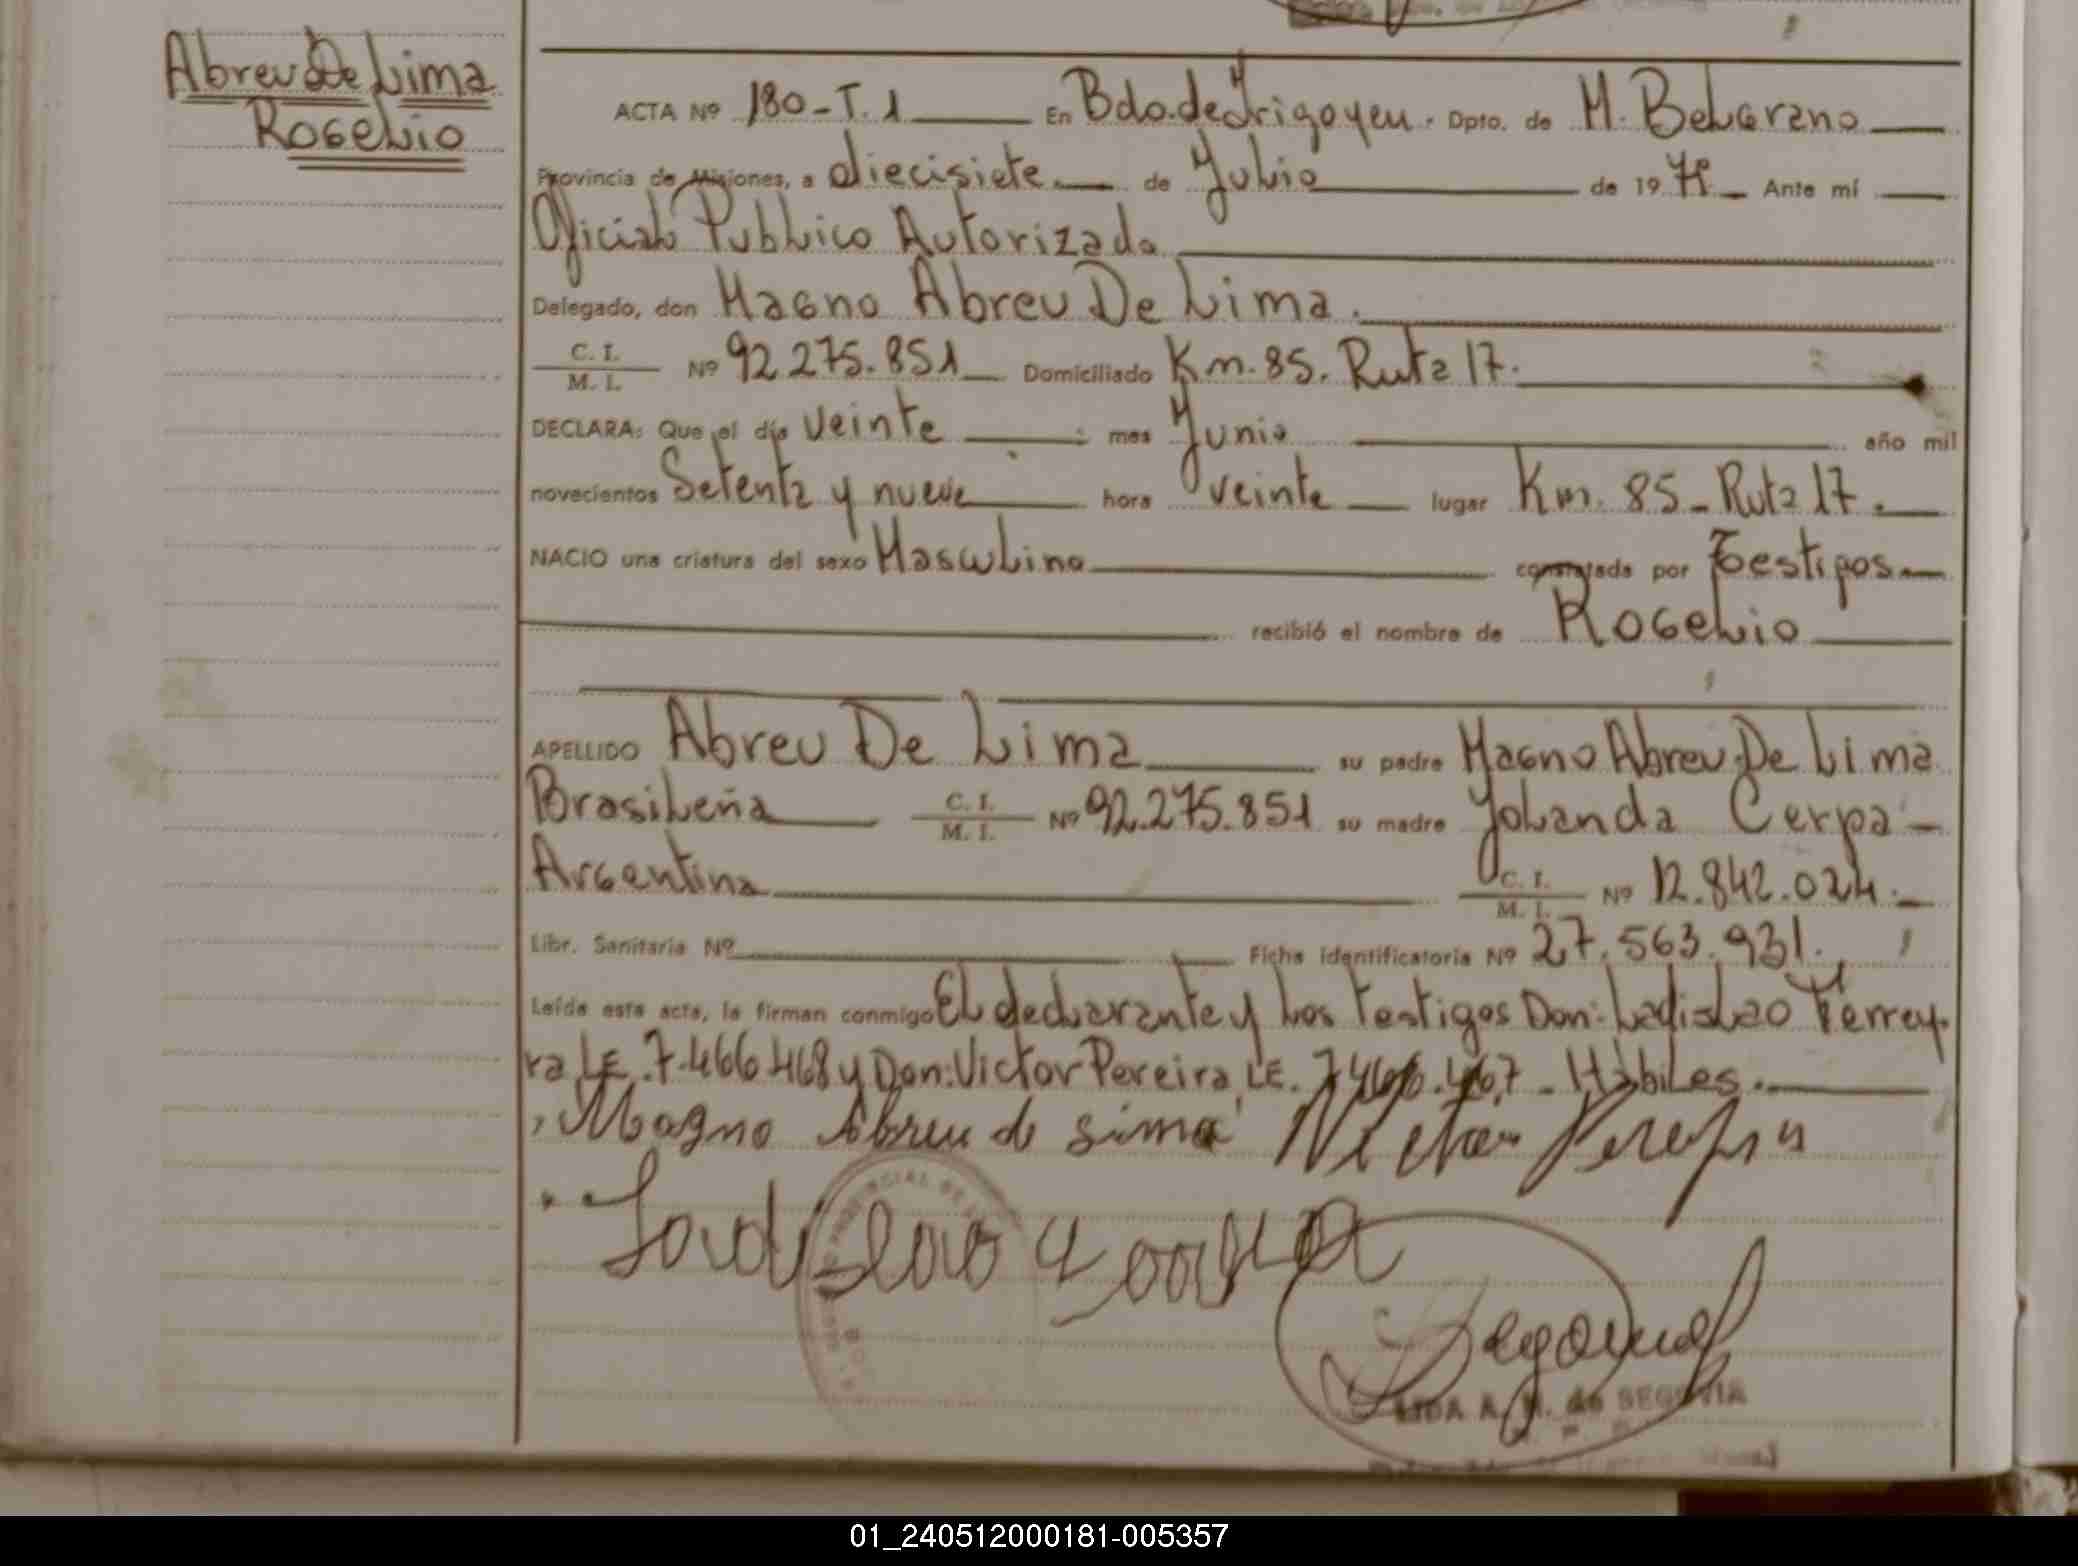 Abreu De Lima
Rogelio
ACTA Nº 180-T.1 En Bdo. de Yrigoyen. Dpto. de M. Belgrano
Provincia de Misiones, a diecisiete de Julio de 19 79 Ante mí
Oficial Publico Autorizado
Delegado, don Magno Abreu De Lima.
C. I.
M. I. Nº 92.275.851 Domiciliado Km. 85. Ruta 17.
DECLARA: Que el día veinte mes Junio año mil
novecientos Setenta y nueve hora veinte lugar Km. 85 - Ruta 17.
NACIO una criatura del sexo Masculino constatada por Testigos
recibió el nombre de Rogelio
APELLIDO Abreu De Lima su padre Magno Abreu De Lima
Brasileña C. I.
M. I. Nº 92.275.851 su madre Yolanda Cerpa
Argentina C. I.
M. I. Nº 12.842.024.
Libr. Sanitaria Nº Ficha identificatoria Nº 27.563.931.
Leída esta acta, la firman conmigo El declarante y los Testigos Don: Ladislao Ferrey-
ra L.E. 7.466.468 y Don: Victor Pereira L.E. 7.466.467 - Hábiles.
Magno Abreu de Lima Victor Pereira
Ladislao
LIDA A. M. de SEGOVIA
01_240512000181-005357